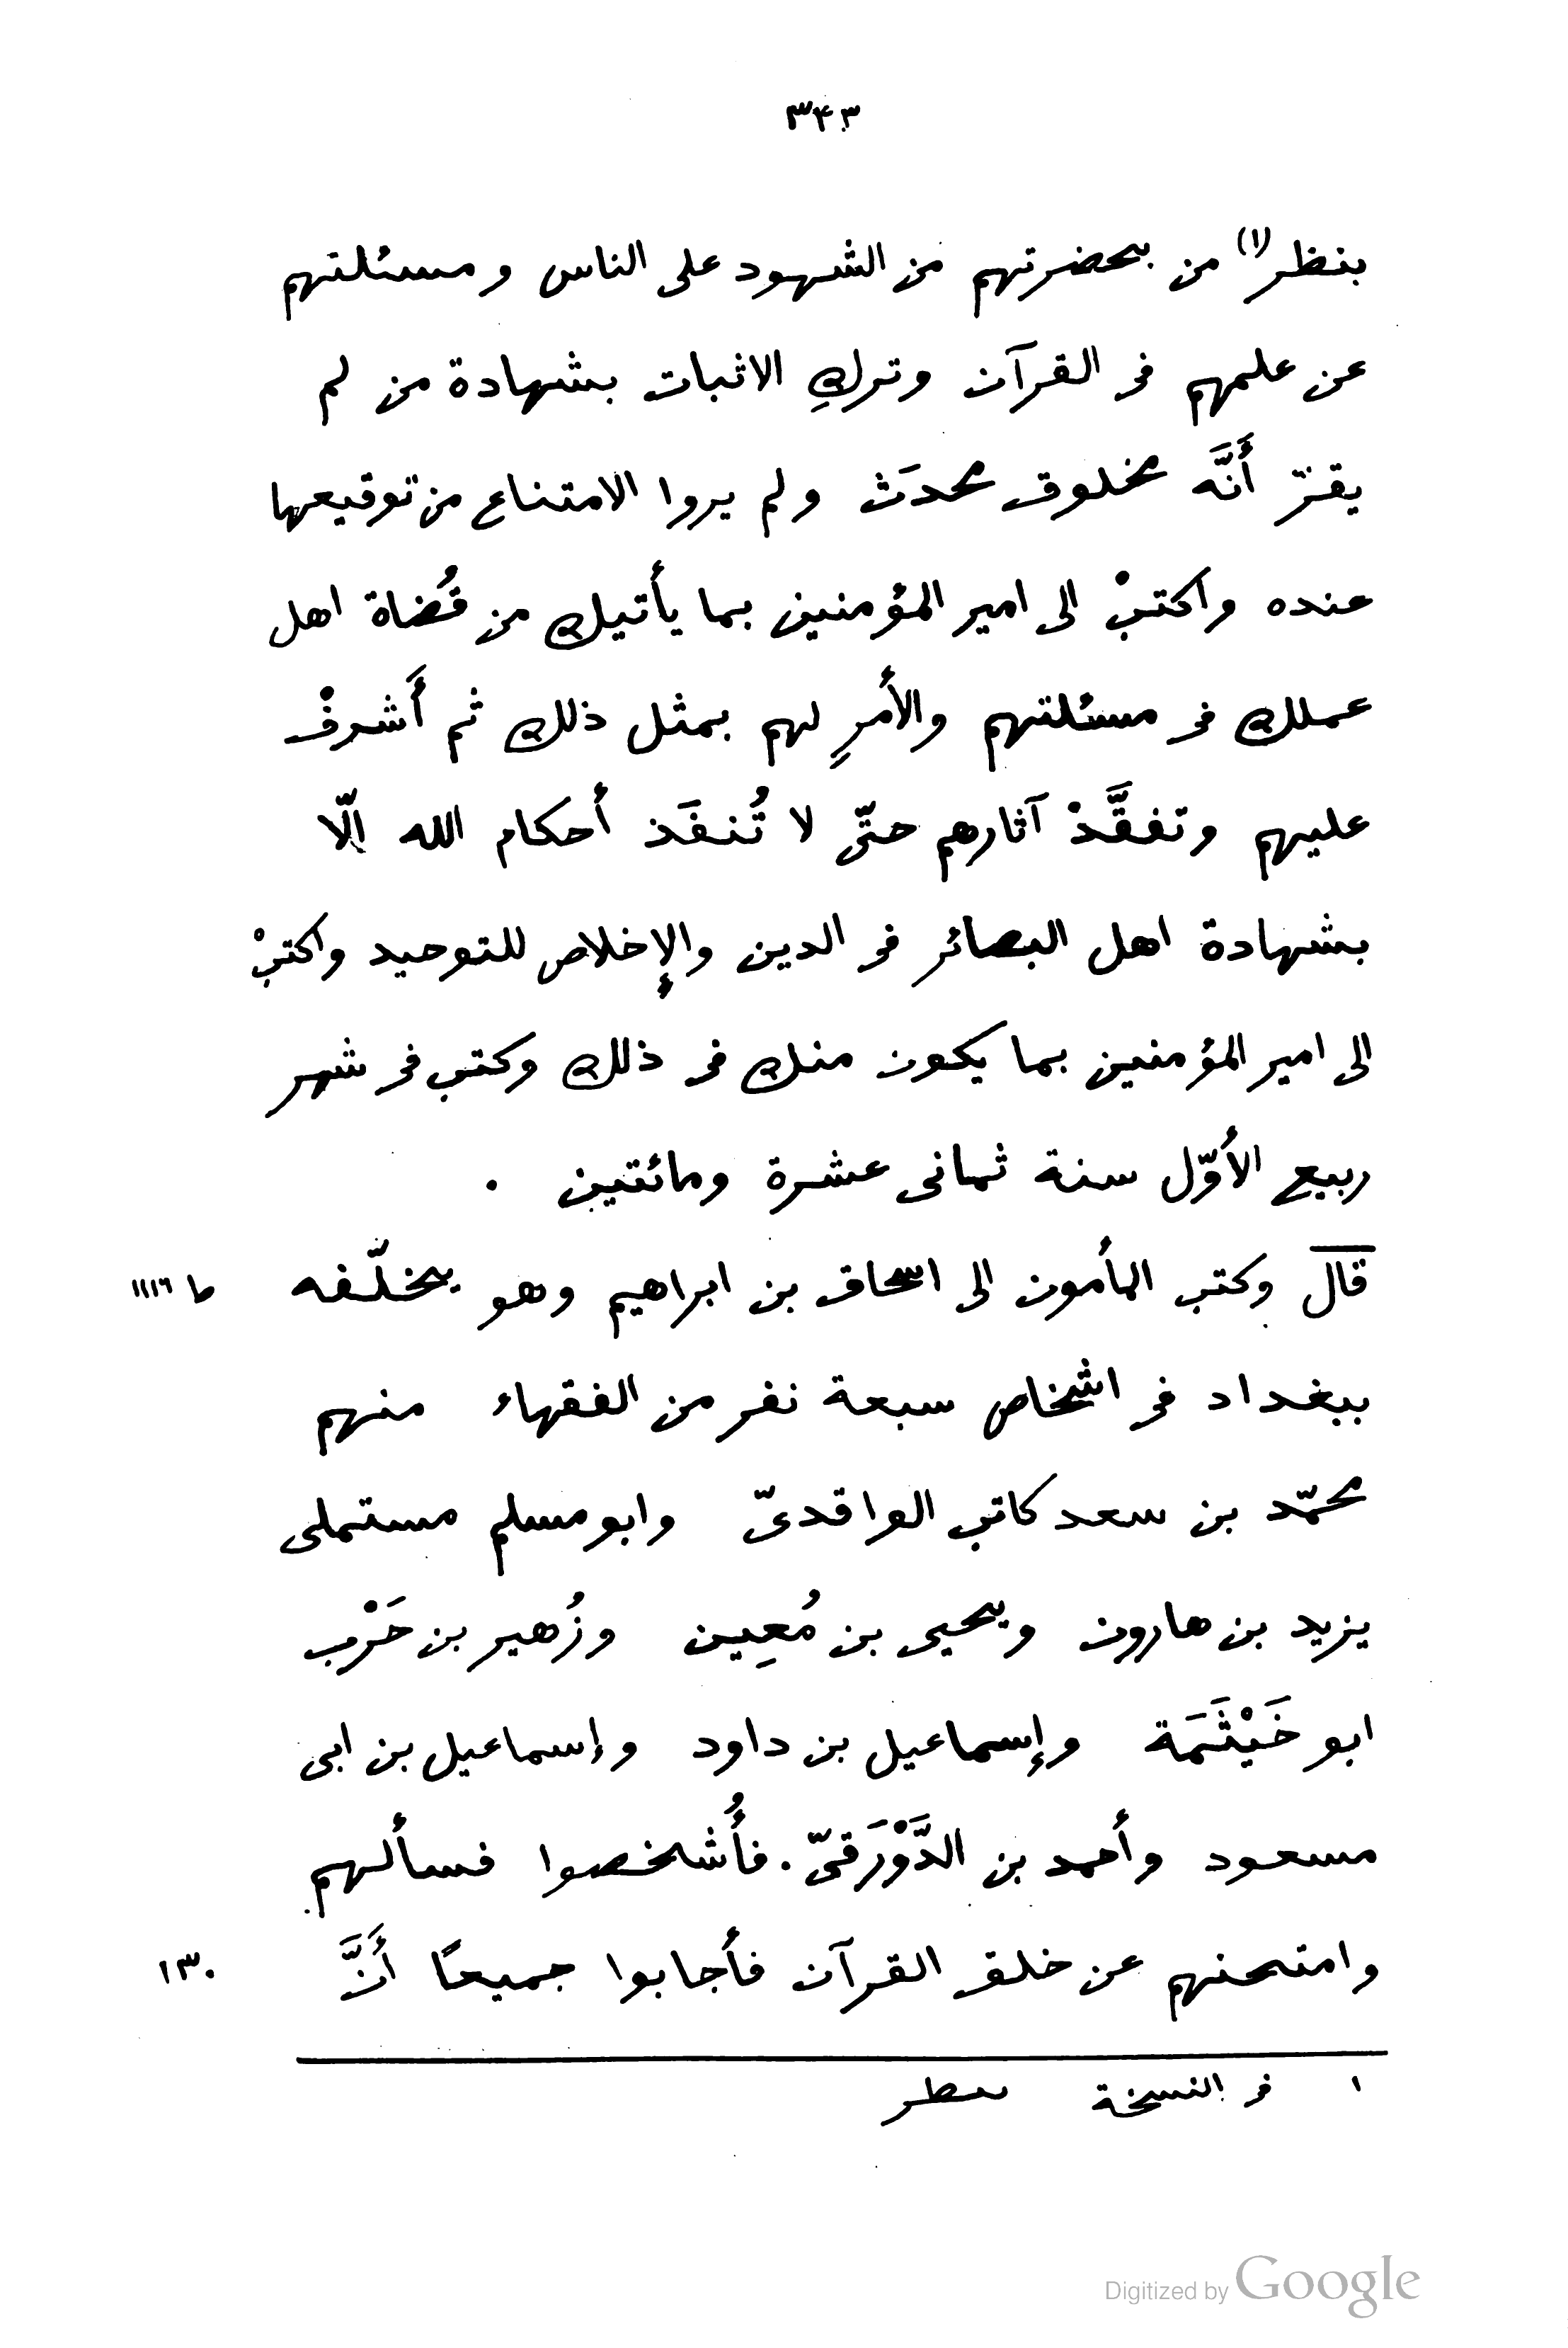 ٣٤٣
بنظر(١) من بحضرتهم من الشهود على الناس ومسئلتهم
عن علمهم فى القرآن وتركِ الاثبات بشهادة من لم
يقرّ أَنَّه مخلوق محدَث ولم يروا الامتناع من توقيعها
عنده واكتبْ الى امير المؤمنين بما يأتيك من قُضاة اهل
عملك فى مسئلتهم والأمرِ لهم بمثل ذلك ثم أَشرفْ
عليهم وتفقَّدْ آثارهم حتّى لا تُنفَذ أحكام الله الّا
بشهادة اهل البصائر فى الدين والإخلاص للتوحيد واكتبْ
الى امير المؤمنين بما يكون منك فى ذلك وكتب فى شهر
ربيع الأوّل سنة ثمانى عشرة ومائتين .
قال وكتب المأمون الى اسحاق بن ابراهيم وهو يخلّفه ط ١١١٦
ببغداد فى اشخاص سبعة نفر من الفقهاء منهم
محمّد بن سعد كاتب الواقدىّ وابو مسلم مستملى
يزيد بن هارون ويحيى بن مُعِين وزُهير بن حَرْب
ابو خَيْثَمَة وإسماعيل بن داود وإسماعيل بن ابى
مسعود وأحمد بن الدَّوْرَقىّ. فأُشخصوا فسألهم
وامتحنهم عن خلق القرآن فأجابوا جميعًا أَنَّ ١٣٠
١ فى النسخة ٮٮطر
Digitized by Google